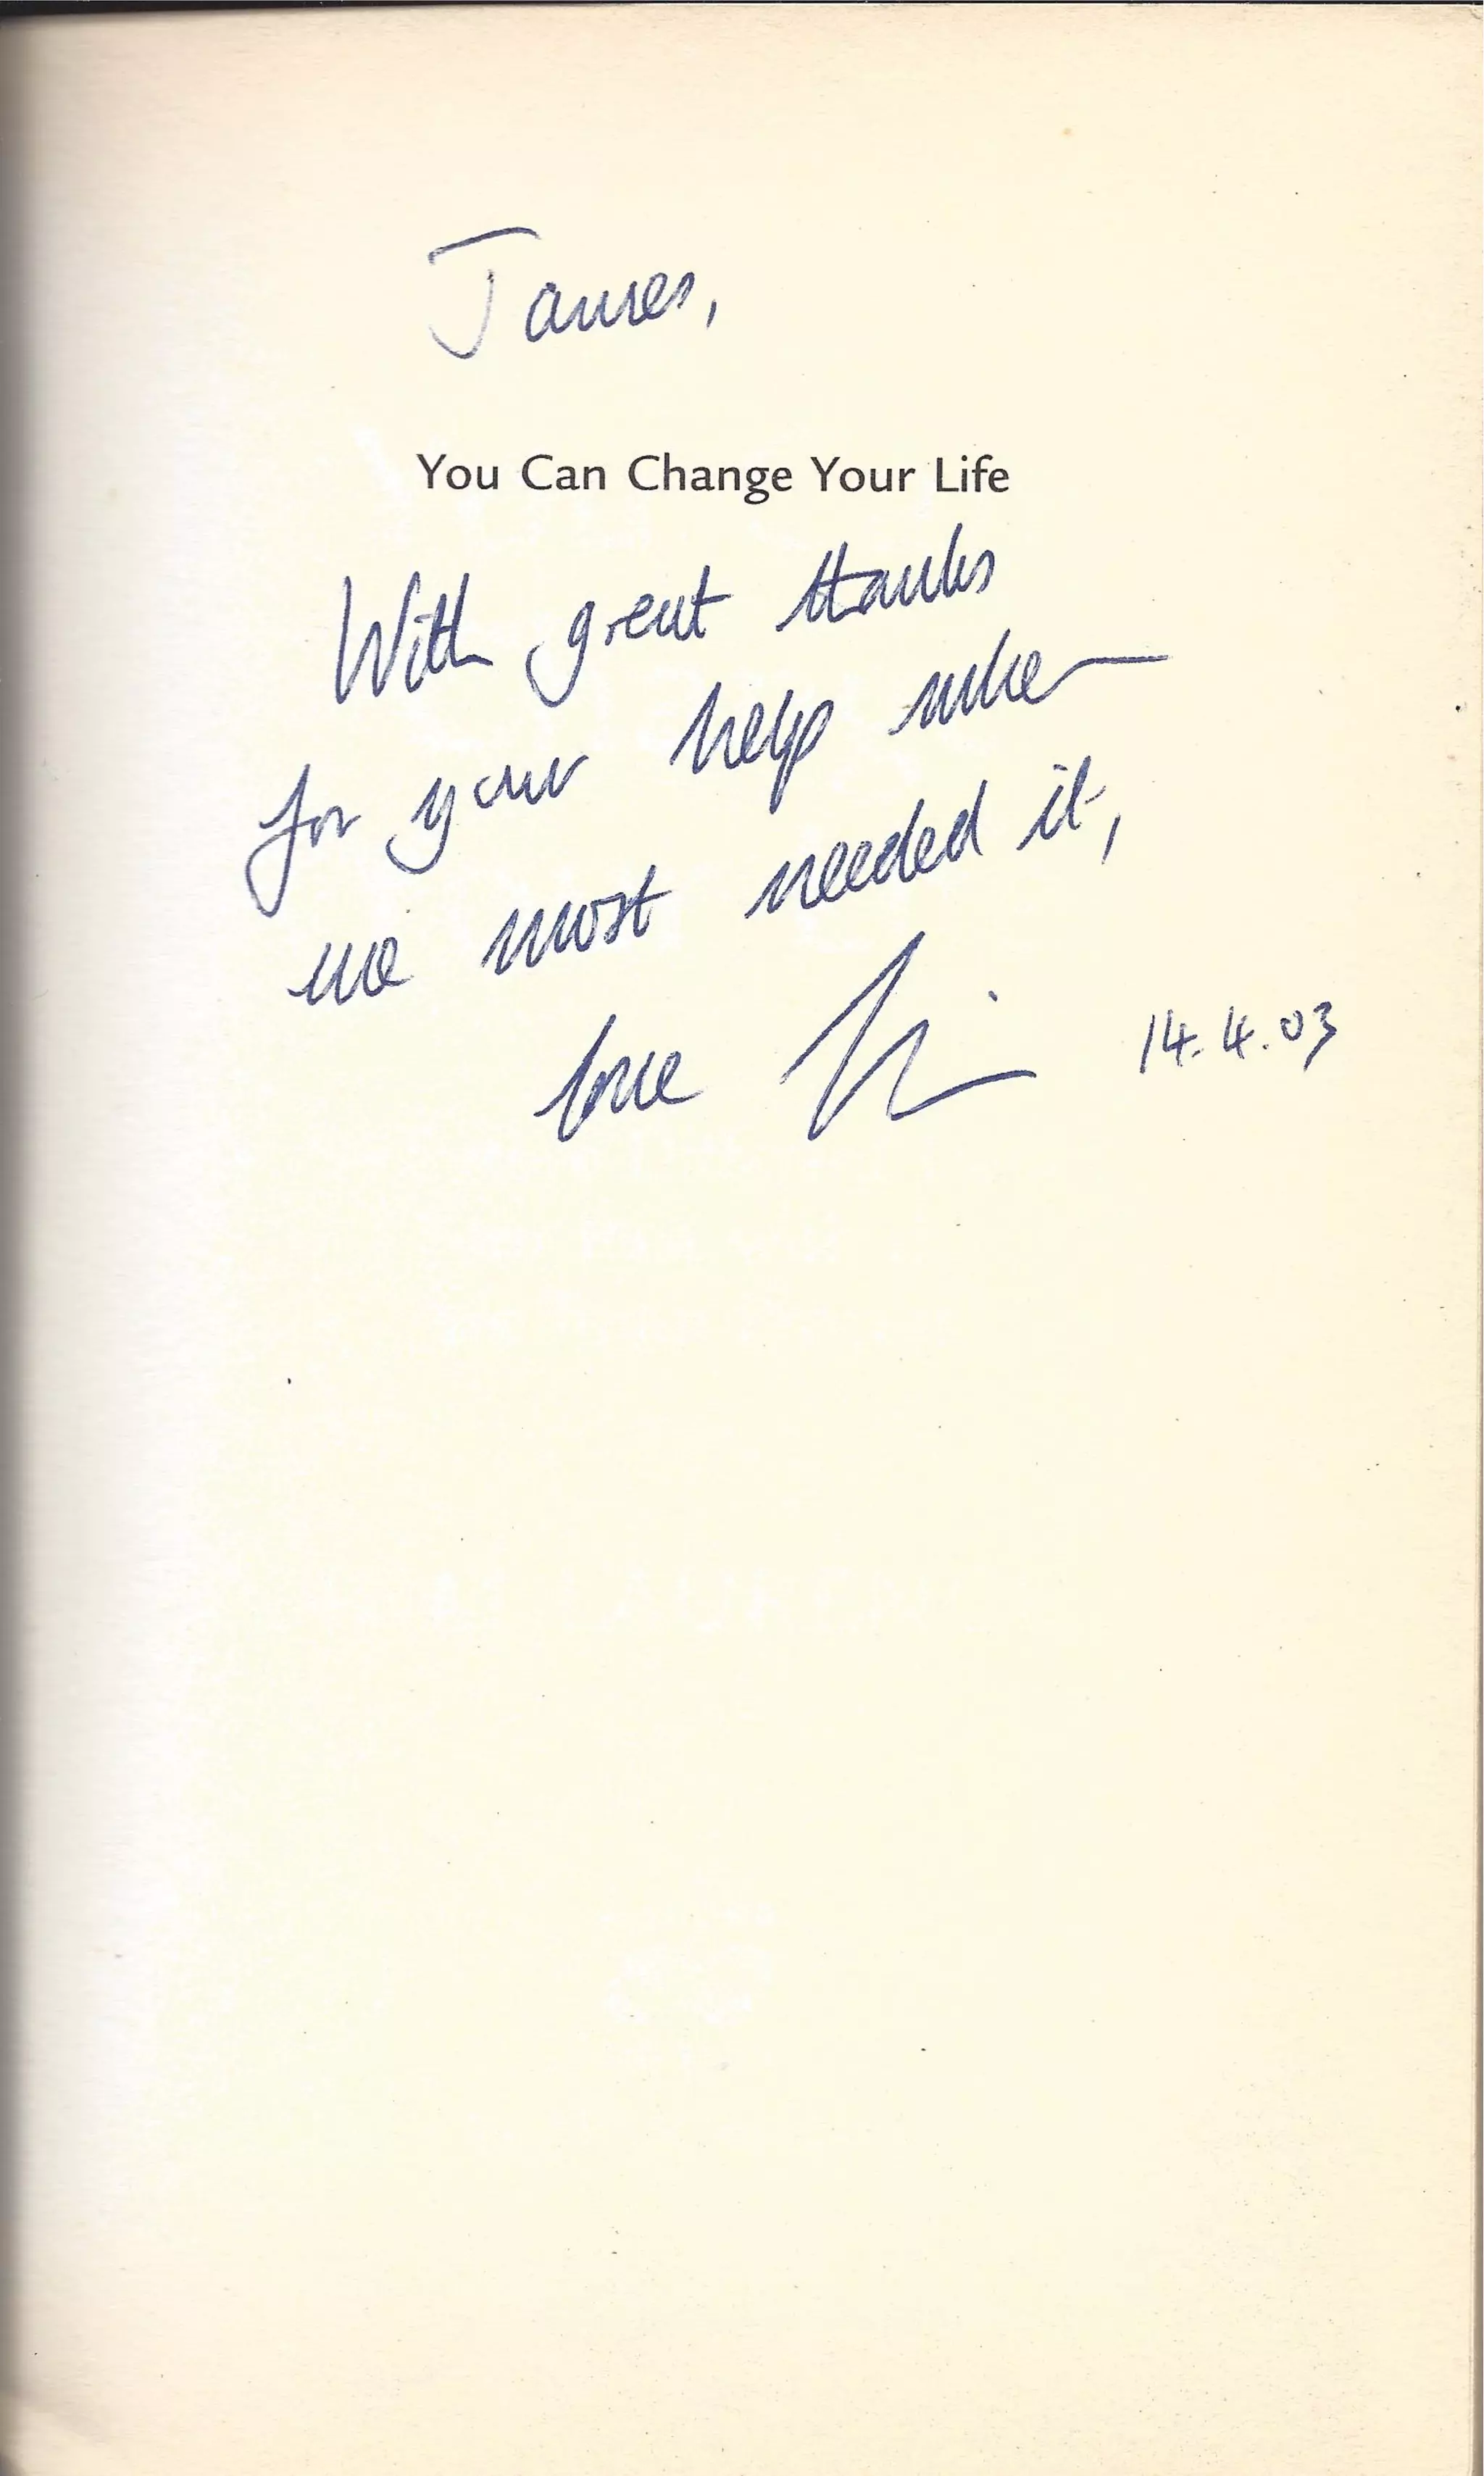 James,
You Can Change Your Life
With great thanks
for your help when
we most needed it,
love
14.4.03